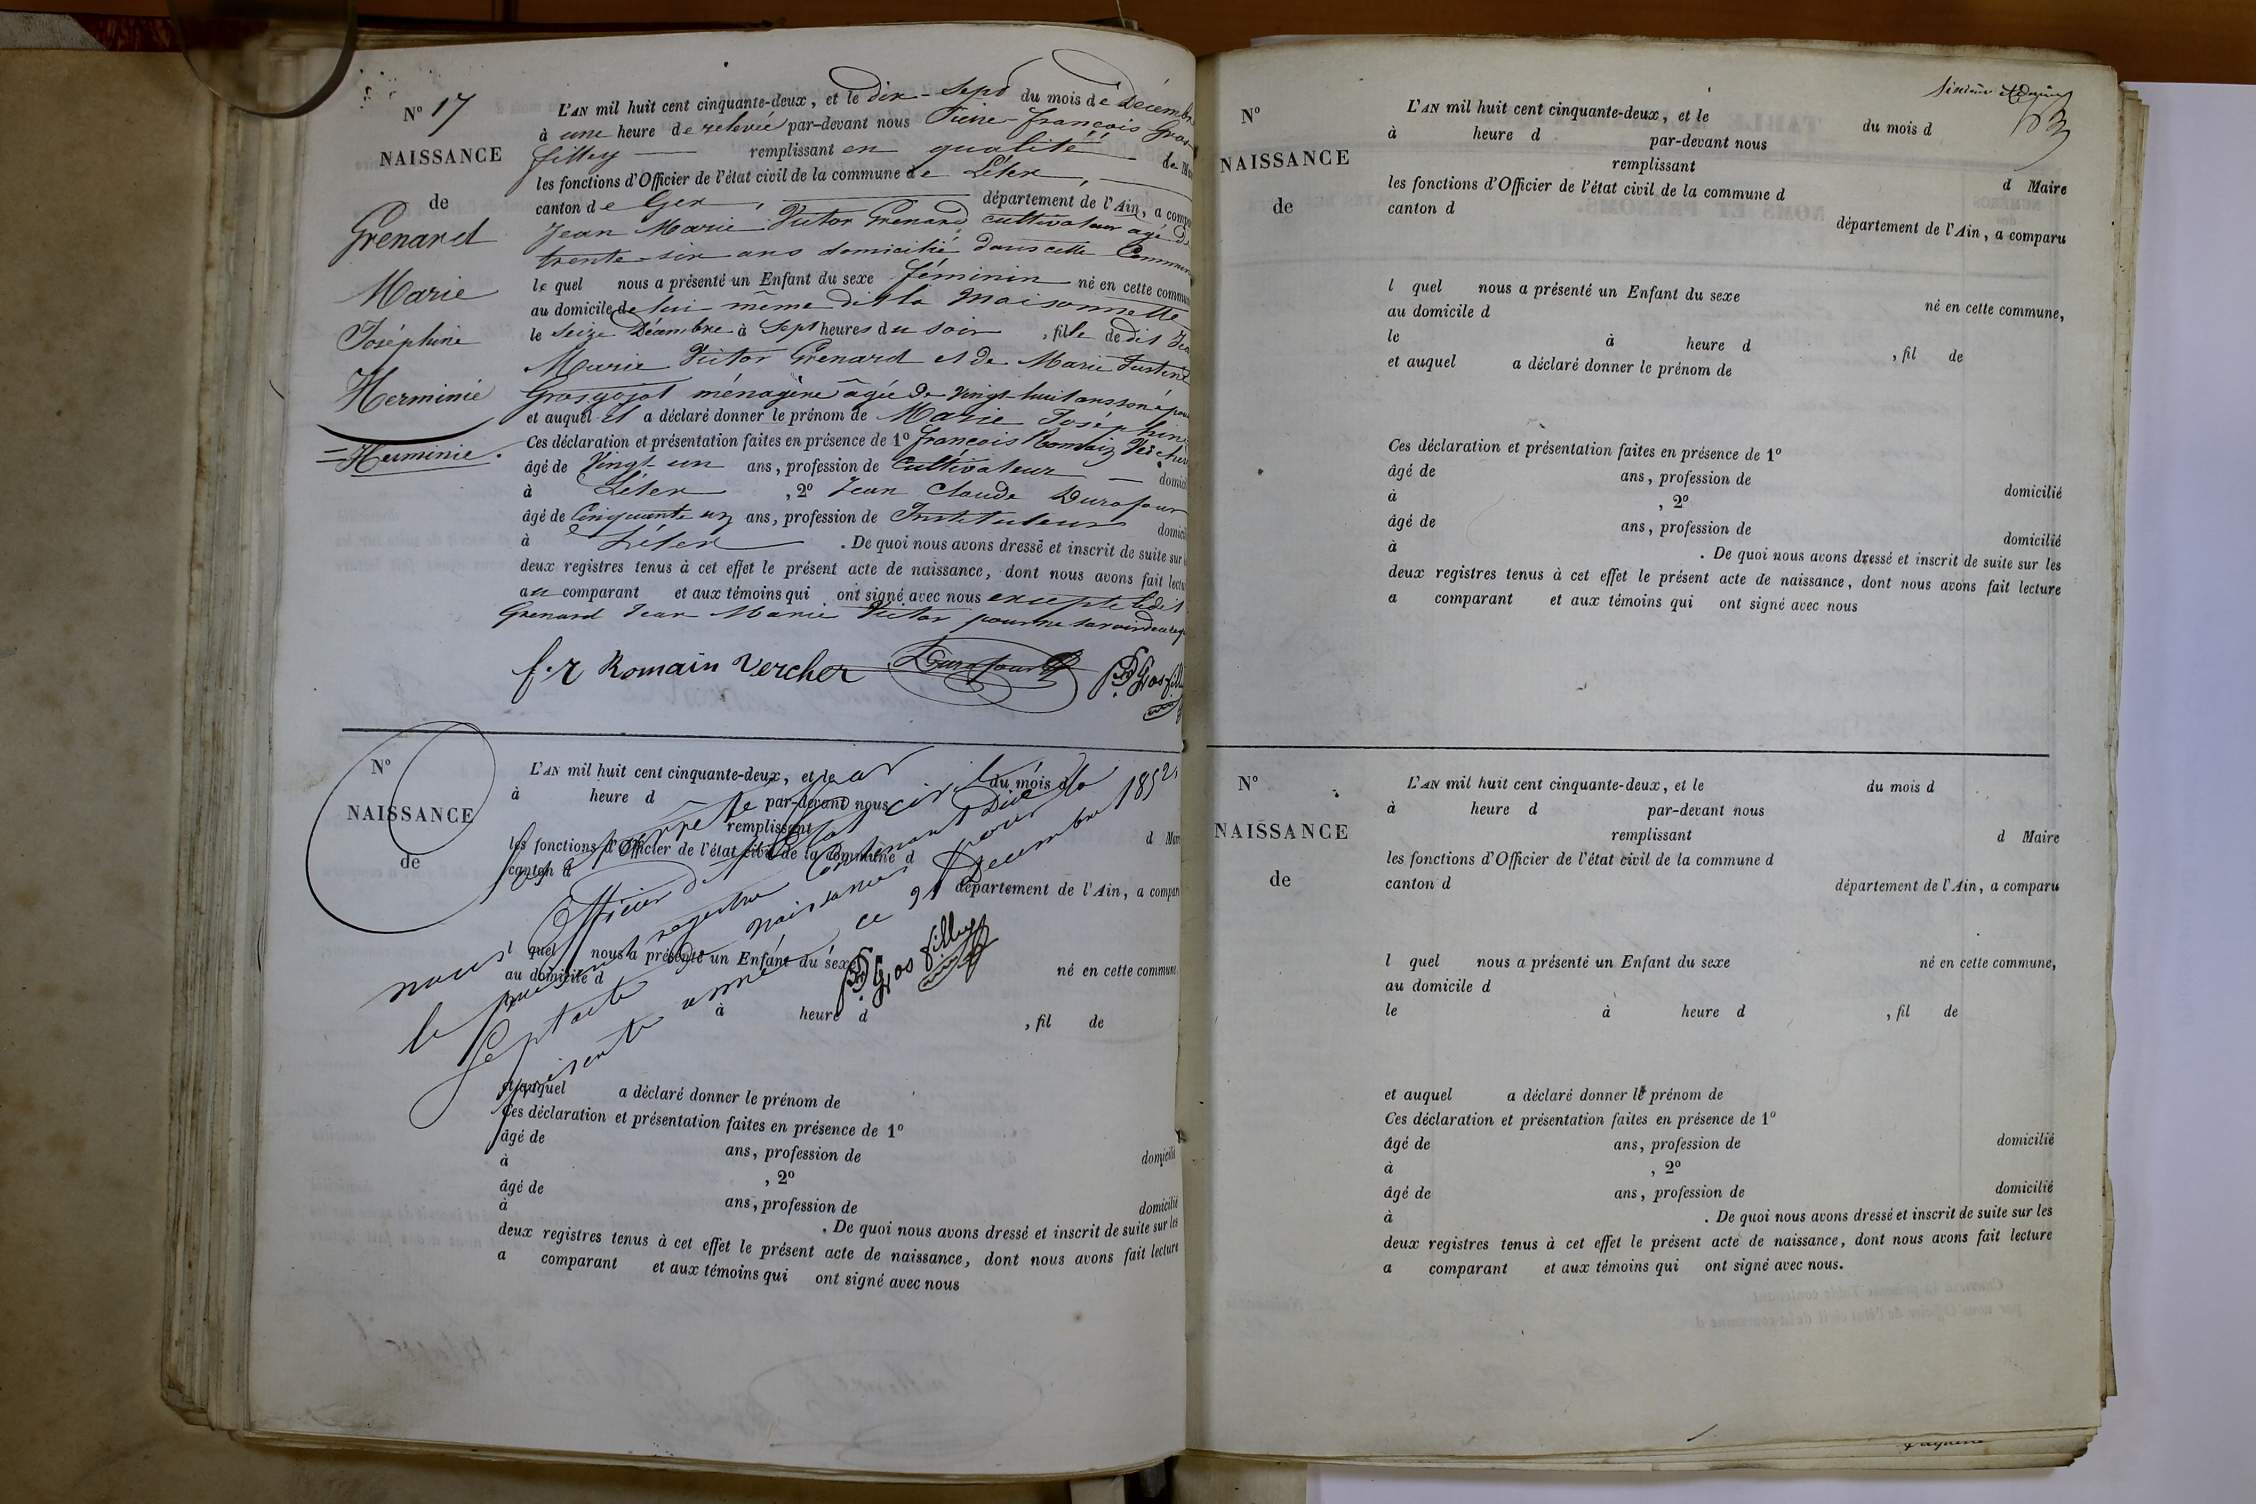 N° 17
NAISSANCE
de
Grenard
Marie
Joséphine
Herminie
= Herminie.
L'AN mil huit cent cinquante-deux, et le dix-sept du mois de Décembre
à une heure de relevée par-devant nous Pierre-françois Gros-
filley — remplissant en qualité de Mai
les fonctions d'Officier de l'état civil de la commune de Lélex,
canton de Gex, département de l'Ain, a compa
Jean Marie Victor Grenard, cultivateur agé de
trente-six ans domicilié dans cette Commune
lequel nous a présenté un Enfant du sexe féminin né en cette commun
au domicile de lui même dit la Maisonnette
le seize Décembre à Sept heures du soir, fille de dit Jea
Marie Victor Grenard et de Marie Justine
Grosgojat ménagère âgée de vingt-huit ans son épouse
et auquel il a déclaré donner le prénom de Marie Joséphine
Ces déclaration et présentation faites en présence de 1° françois Romain Vercher
âgé de Vingt-un ans, profession de Cultivateur — domici
à Lélex, 2° Jean Claude Durafour
âgé de Cinquante un ans, profession de Instituteur domici
à Lélex. De quoi nous avons dressé et inscrit de suite sur l
deux registres tenus à cet effet le présent acte de naissance, dont nous avons fait lectu
au comparant et aux témoins qui ont signé avec nous excepté ledit
Grenard Jean Marie Victor pour ne savoir de ce requis
f.r Romain Vercher Durafour Grosfilley
N°
NAISSANCE
de
L'AN mil huit cent cinquante-deux, et le du mois d
à heure d par-devant nous
remplissant d Mair
les fonctions d'Officier de l'état civil de la commune d
canton d département de l'Ain, a compar
l quel nous a présenté un Enfant du sexe né en cette commune
au domicile d
à heure d, fil de
et auquel a déclaré donner le prénom de
Ces déclaration et présentation faites en présence de 1°
âgé de ans, profession de domicilié
à, 2°
âgé de ans, profession de domicilié
à. De quoi nous avons dressé et inscrit de suite sur les
deux registres tenus à cet effet le présent acte de naissance, dont nous avons fait lecture
a comparant et aux témoins qui ont signé avec nous
Clos et arrêté par
nous Officier de l'état civil
le présent registre contenant Dix
Sept actes de naissances pour la
présente année ce 31 Décembre 1852.
Gros filley
53
N°
NAISSANCE
de
L'AN mil huit cent cinquante-deux, et le du mois d
à heure d par-devant nous
remplissant d Maire
les fonctions d'Officier de l'état civil de la commune d
canton d département de l'Ain, a comparu
l quel nous a présenté un Enfant du sexe né en cette commune,
au domicile d
le à heure d, fil de
et auquel a déclaré donner le prénom de
Ces déclaration et présentation faites en présence de 1°
âgé de ans, profession de domicilié
à, 2°
âgé de ans, profession de domicilié
à. De quoi nous avons dressé et inscrit de suite sur les
deux registres tenus à cet effet le présent acte de naissance, dont nous avons fait lecture
a comparant et aux témoins qui ont signé avec nous
N°
NAISSANCE
de
L'AN mil huit cent cinquante-deux, et le du mois d
à heure d par-devant nous
remplissant d Maire
les fonctions d'Officier de l'état civil de la commune d
canton d département de l'Ain, a comparu
l quel nous a présenté un Enfant du sexe né en cette commune,
au domicile d
le à heure d, fil de
et auquel a déclaré donner le prénom de
Ces déclaration et présentation faites en présence de 1°
âgé de ans, profession de domicilié
à, 2°
âgé de ans, profession de domicilié
à. De quoi nous avons dressé et inscrit de suite sur les
deux registres tenus à cet effet le présent acte de naissance, dont nous avons fait lecture
a comparant et aux témoins qui ont signé avec nous.